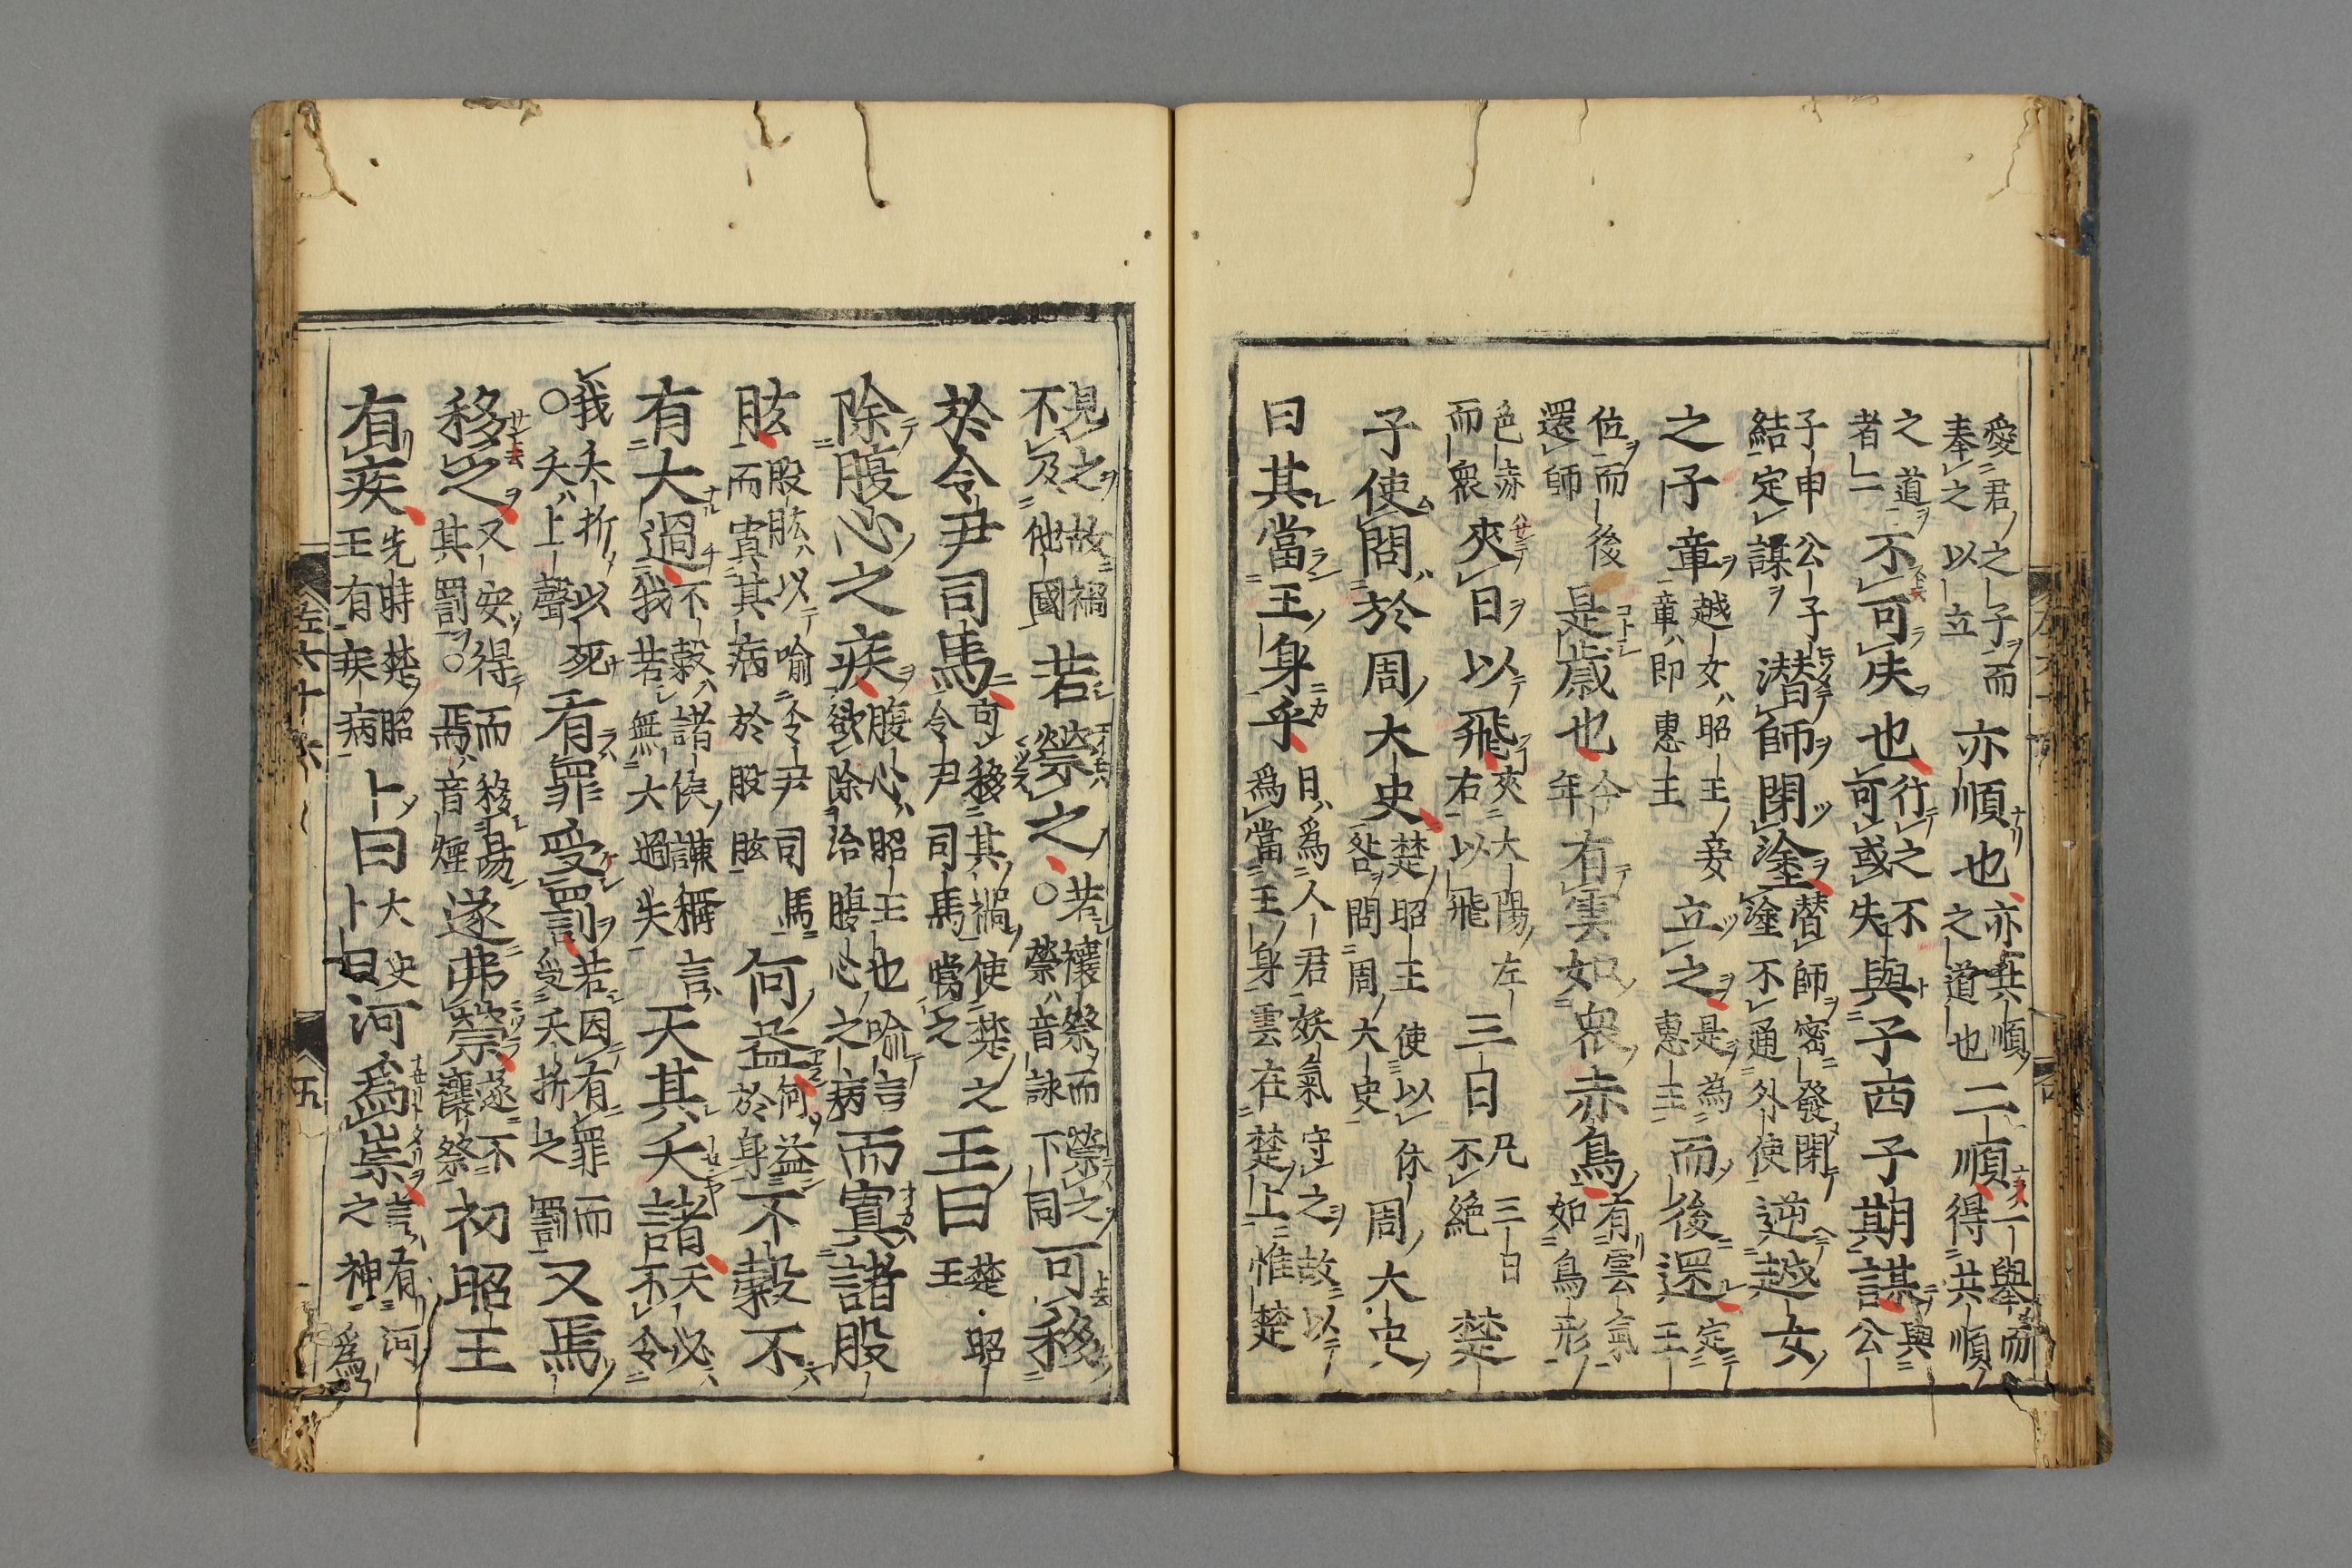 愛君之子而奉之以立亦順也亦共順之道也二順一舉而得共順
之道者二不可失也行之不可或失與子西子期謀與公
子申公子結定謀潛師閉塗潛師密發閉塗不通外使逆越女
之子章越女昭王妾章即惠王立之是為惠王而後還定王
位而後還師是歲也今年有雲如衆赤鳥有雲氣如鳥形
色赤而衆夾日以飛夾大陽左右以飛三日凡三日不絶楚
子使問於周大史楚昭王使以咎問周大史周大史
曰其當王身乎日為人君妖氣守之故以為當王身雲在楚上惟楚
見之故禍不及他國若禜之若禳祭而禜之○禜音詠下同可移
於令尹司馬可移其禍使楚之令尹司馬當之王曰楚昭王
除腹心之疾腹心昭王也喻言欲除治腹心之病而寘諸股
肱股肱以喻令尹司馬而寘其病於股肱何益何益於身不穀不
有大過不穀諸侯謙稱言我若無大過失天其夭諸天必不令
我夭折以死○夭上聲有罪受罰若因有罪而受夭折之罰又焉
移之又安得而移易其罰○焉音煙遂弗禜遂不禳祭初昭王
有疾先時楚昭王有疾病卜曰大史卜曰河為祟言有河之神為
左六十六
五